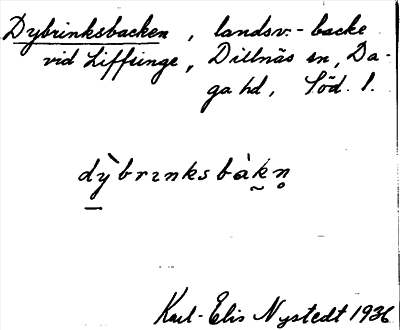 Dybrinksbacken, landsv.-backe
vid Liffsinge, Dillnäs sn, Da-
ga hd, Söd. l.
dỳbrɪnksbàk̰n̥
Karl-Elis Nystedt 1936